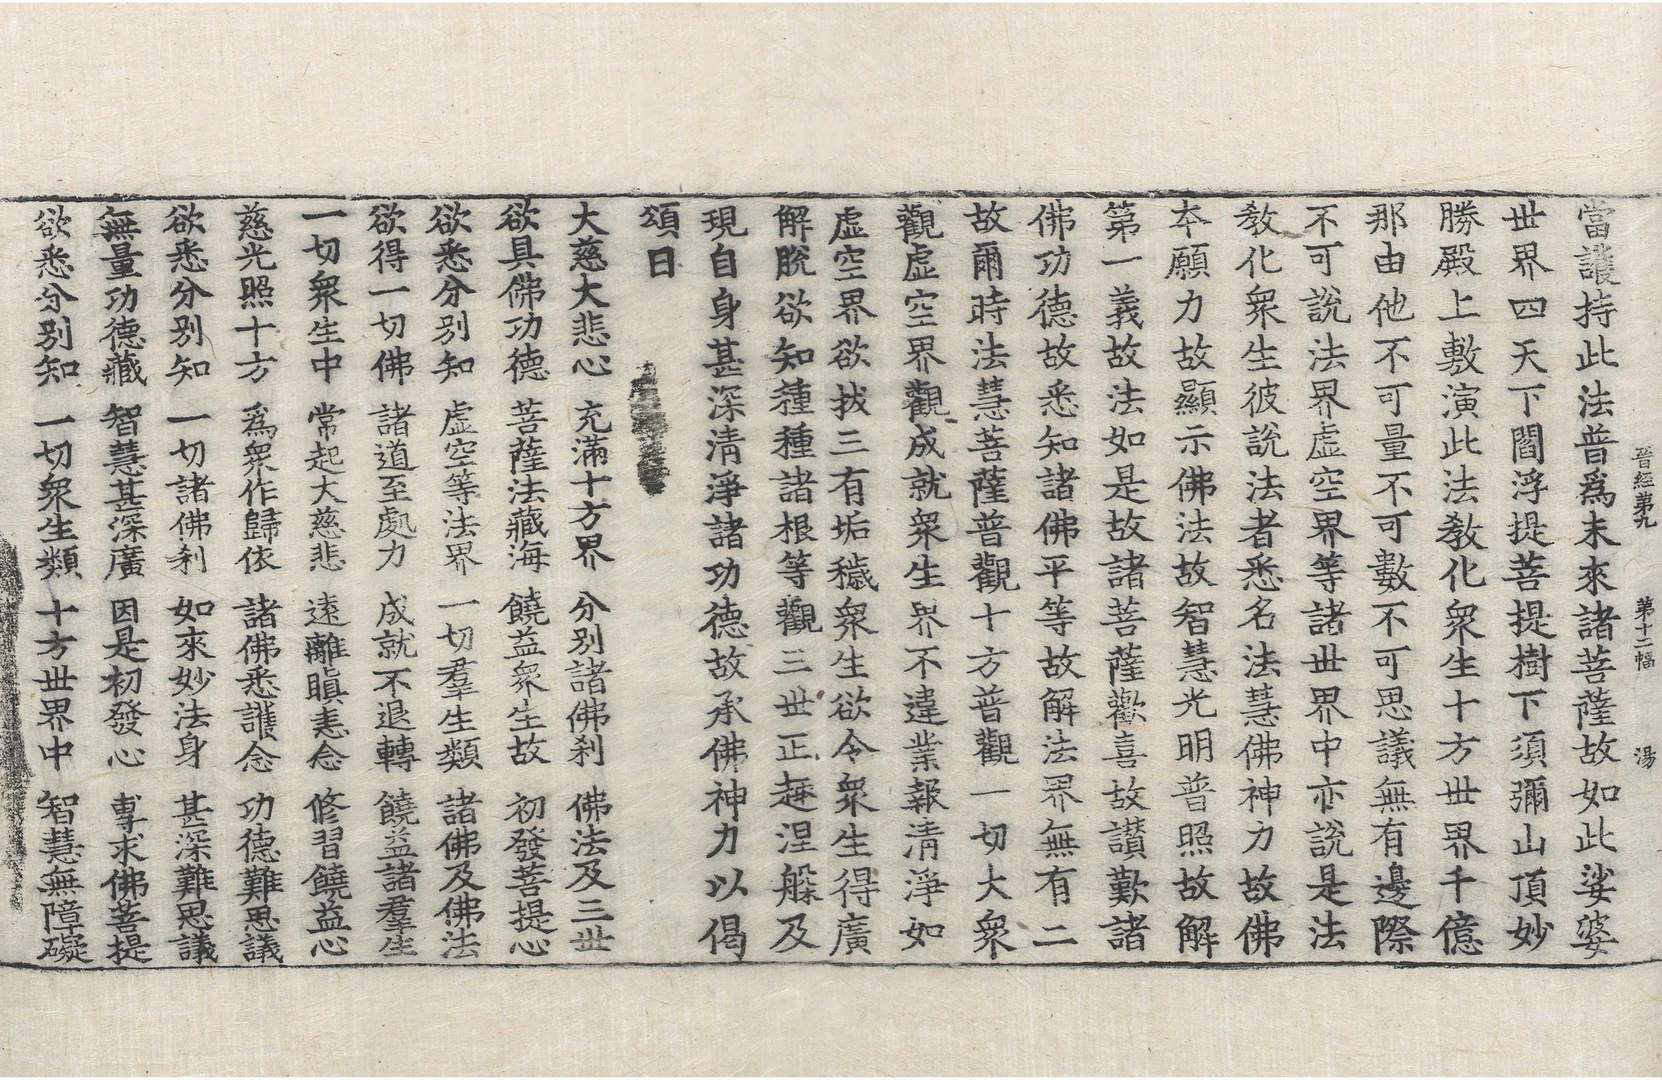 晉經第九　第十二幅　湯
當護持此法普爲未來諸菩薩故如此娑婆
世界四天下閻浮提菩提樹下須彌山頂妙
勝殿上敷演此法教化衆生十方世界千億
那由他不可量不可數不可思議無有邊際
不可說法界虛空界等諸世界中亦說是法
教化衆生彼說法者悉名法慧佛神力故佛
本願力故顯示佛法故智慧光明普照故解
第一義故法如是故諸菩薩歡喜故讃歎諸
佛功德故悉知諸佛平等故解法界無有二
故爾時法慧菩薩普觀十方普觀一切大衆
觀虛空界觀成就衆生界不違業報清淨如
虛空界欲拔三有垢穢衆生欲令衆生得廣
解脫欲知種種諸根等觀三世正趣涅槃及
現自身甚深清淨諸功德故承佛神力以偈
頌曰
大慈大悲心　充滿十方界　分別諸佛刹　佛法及三世
欲具佛功德　菩薩法藏海　饒益衆生故　初發菩提心
欲悉分別知　虛空等法界　一切羣生類　諸佛及佛法
欲得一切佛　諸道至處力　成就不退轉　饒益諸羣生
一切衆生中　常起大慈悲　遠離瞋恚念　修習饒益心
慈光照十方　爲衆作歸依　諸佛悉護念　功德難思議
欲悉分別知　一切諸佛刹　如來妙法身　甚深難思議
無量功德藏　智慧甚深廣　因是初發心　專求佛菩提
欲悉分別知　一切衆生類　十方世界中　智慧無障礙